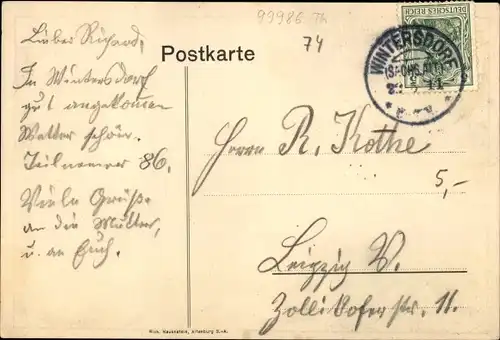 99986 Th
74
DEUTSCHES REICH
WINTERSDORF
Postkarte
Lieber Richard,
In Wintersdorf
gut angekommen
Wetter schön.
Teilnemer 86.
Viele Grüße
an die Mutter,
u. an Euch.
Herrn R. Kothe
5,-
Leipzig V.
Zollikoferstr. 11.